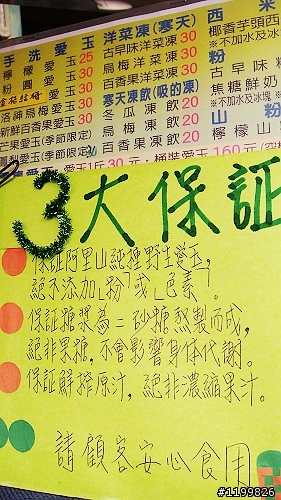 手洗愛玉
檸檬愛玉25
粉圓愛玉30
洛神烏梅愛玉30
新鮮百香果愛玉30
芒果愛玉(季節限定)
洋菜凍(寒天)
古早味洋菜凍30
烏梅洋菜凍30
百香果洋菜凍30
寒天凍飲(吸的凍)
冬瓜凍飲20
烏梅凍飲20
百香果凍飲20
西米
椰香芋頭西
※不加水及冰
粉
古早味
焦糖鮮奶
※不加水及冰塊
山粉
檸檬山
1斤30元,桶裝愛玉160元
3大保証
保証阿里山純種野生愛玉,
絕不添加「粉」或「色素」。
保証糖漿為二砂糖熬製而成,
絕非果糖,不會影響身体代謝。
保証鮮搾原汁,絕非濃縮果汁。
請顧客安心食用
#1199826